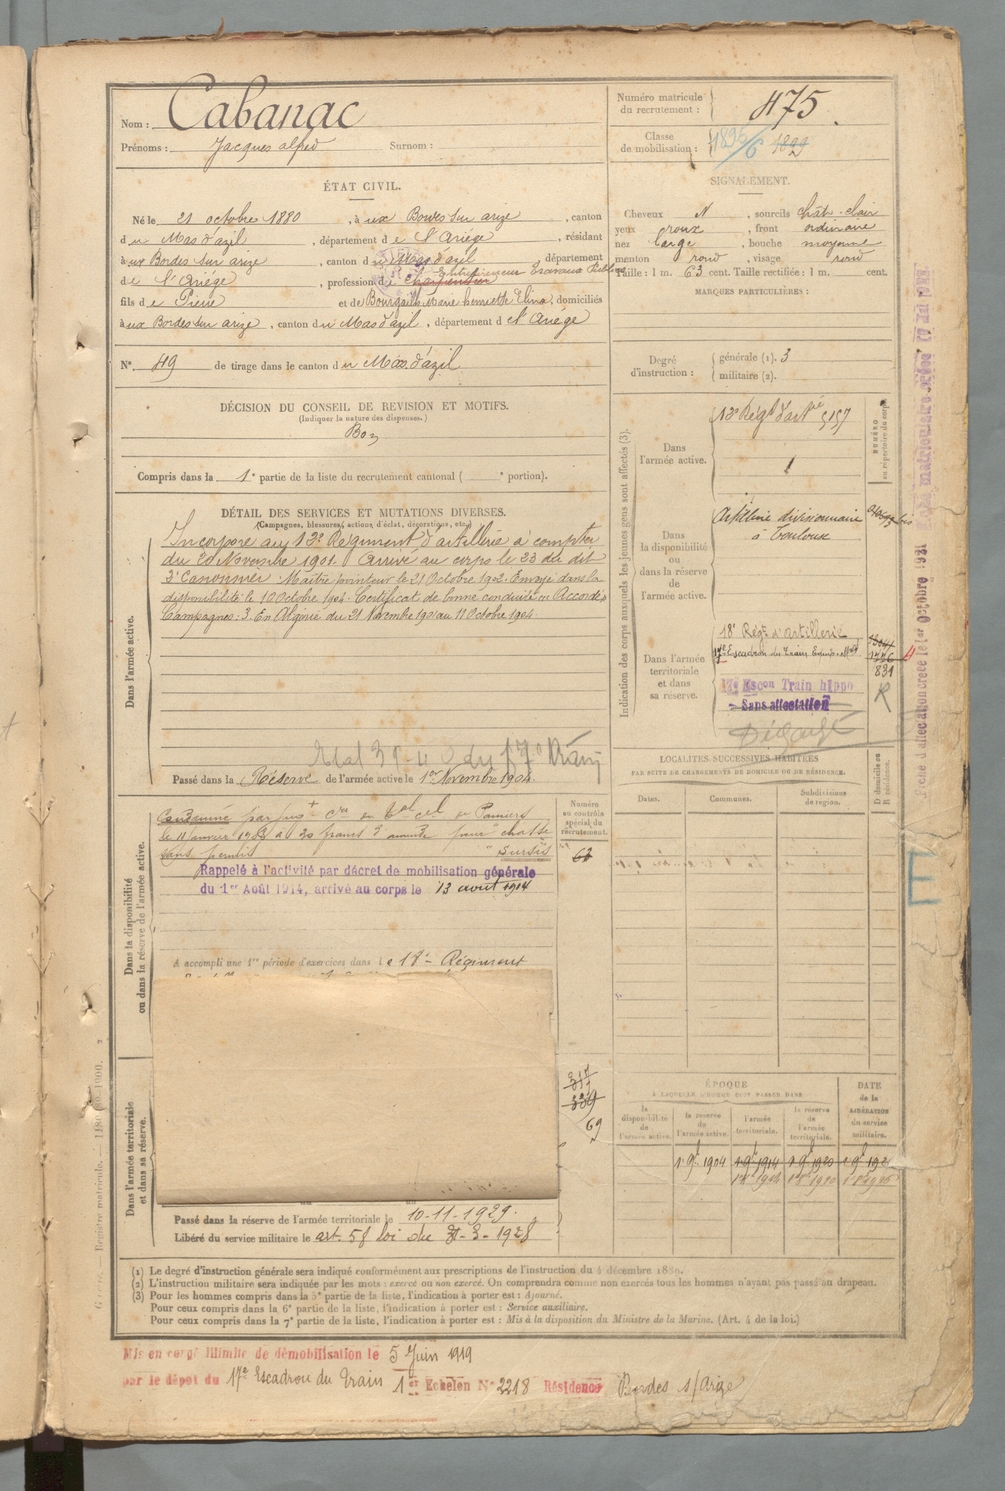 Nom : Cabanac
Prénoms : Jacques alfred Surnom :
Numéro matricule du recrutement : 475
Classe de mobilisation : 1896/6 1899
ÉTAT CIVIL.
Né le 21 octobre 1880, à ux Bordes sur arize, canton
d u Mas d'azil, département d e l'Ariège, résidant
à ux Bordes sur arize, canton d u Mas d'azil, département
d e l'Ariège, profession d e charpentier Entrepreneur Travaux Publics
fils d e Pierre et de Bourgail Marie henriette Elina, domiciliés
à ux Bordes sur arize, canton d u Mas d'azil, département d e l'Ariège
N° 49 de tirage dans le canton d u Mas d'azil
SIGNALEMENT.
Cheveux N, sourcils chât-clair
yeux roux, front ordinaire
nez large, bouche moyenne
menton rond, visage rond
Taille : 1 m. 63 cent. Taille rectifiée : 1 m. cent.
MARQUES PARTICULIÈRES :
Degré d'instruction : générale (1). 3
militaire (2).
DÉCISION DU CONSEIL DE REVISION ET MOTIFS.
(Indiquer la nature des dispenses.)
Bon
Compris dans la 1e partie de la liste du recrutement cantonal ( e portion).
DÉTAIL DES SERVICES ET MUTATIONS DIVERSES.
(Campagnes, blessures, actions d'éclat, décorations, etc.)
Dans l'armée active.
Incorporé au 13e Régiment d'artillerie à compter
du 20 Novembre 1901. Arrivé au corps le 23 du dit
2e Canonnier Maître pointeur le 21 Octobre 1902. Envoyé dans la
disponibilité le 10 Octobre 1904. Certificat de bonne conduite Accordé
Campagnes : 3. En Algérie du 21 Novembre 1901 au 11 Octobre 1904
Passé dans la Réserve de l'armée active le 1er Novembre 1904.
Dans la disponibilité ou dans la réserve de l'armée active.
Condamné par jugt
le 11 janvier à 20 francs d'amende pour chasse
sans permis sursis
Rappelé à l'activité par décret de mobilisation générale
du 1er Août 1914, arrivé au corps le 13 août 1914
A accompli une 1re période d'exercices dans le 18e Régiment
Dans l'armée territoriale et dans sa réserve.
Passé dans la réserve de l'armée territoriale le 10-11-1929.
Libéré du service militaire le art. 58 loi du 31-3-1928
Numéro au contrôle spécial du recrutement.
62
317
339
69
Indication des corps auxquels les jeunes gens sont affectés (3).
NUMÉRO au répertoire du corps
Dans l'armée active.
13e Régt d'artie 5157
Dans la disponibilité ou dans la réserve de l'armée active.
Artillerie divisionnaire
à Toulouse
Dans l'armée territoriale et dans sa réserve.
18e Régt d'artillerie
17e Escadron du Train
17e Escon Train hippo
Sans affectation
Dégagé
831
R
LOCALITÉS SUCCESSIVES HABITÉES
PAR SUITE DE CHANGEMENTS DE DOMICILE OU DE RÉSIDENCE.
Dates. Communes. Subdivisions de région. D domicile ou R résidence.
ÉPOQUE
À LAQUELLE L'HOMME DOIT PASSER DANS
DATE de la LIBÉRATION du service militaire.
la disponibilité de l'armée active. la réserve de l'armée active. l'armée territoriale. la réserve de l'armée territoriale.
1er 9bre 1904 1er 9bre 1914 1er 9bre 1920
(1) Le degré d'instruction générale sera indiqué conformément aux prescriptions de l'instruction du 4 décembre 1889.
(2) L'instruction militaire sera indiquée par les mots : exercé ou non exercé. On comprendra comme non exercés tous les hommes n'ayant pas passé au drapeau.
(3) Pour les hommes compris dans la 5e partie de la liste, l'indication à porter est : Ajourné.
Pour ceux compris dans la 6e partie de la liste, l'indication à porter est : Service auxiliaire.
Pour ceux compris dans la 7e partie de la liste, l'indication à porter est : Mis à la disposition du Ministre de la Marine. (Art. 4 de la loi.)
Mis en congé illimité de démobilisation le 5 Juin 1919
par le dépôt du 17e Escadron du Train 1er Echelon N° 2218 Résidence Bordes s/Arize